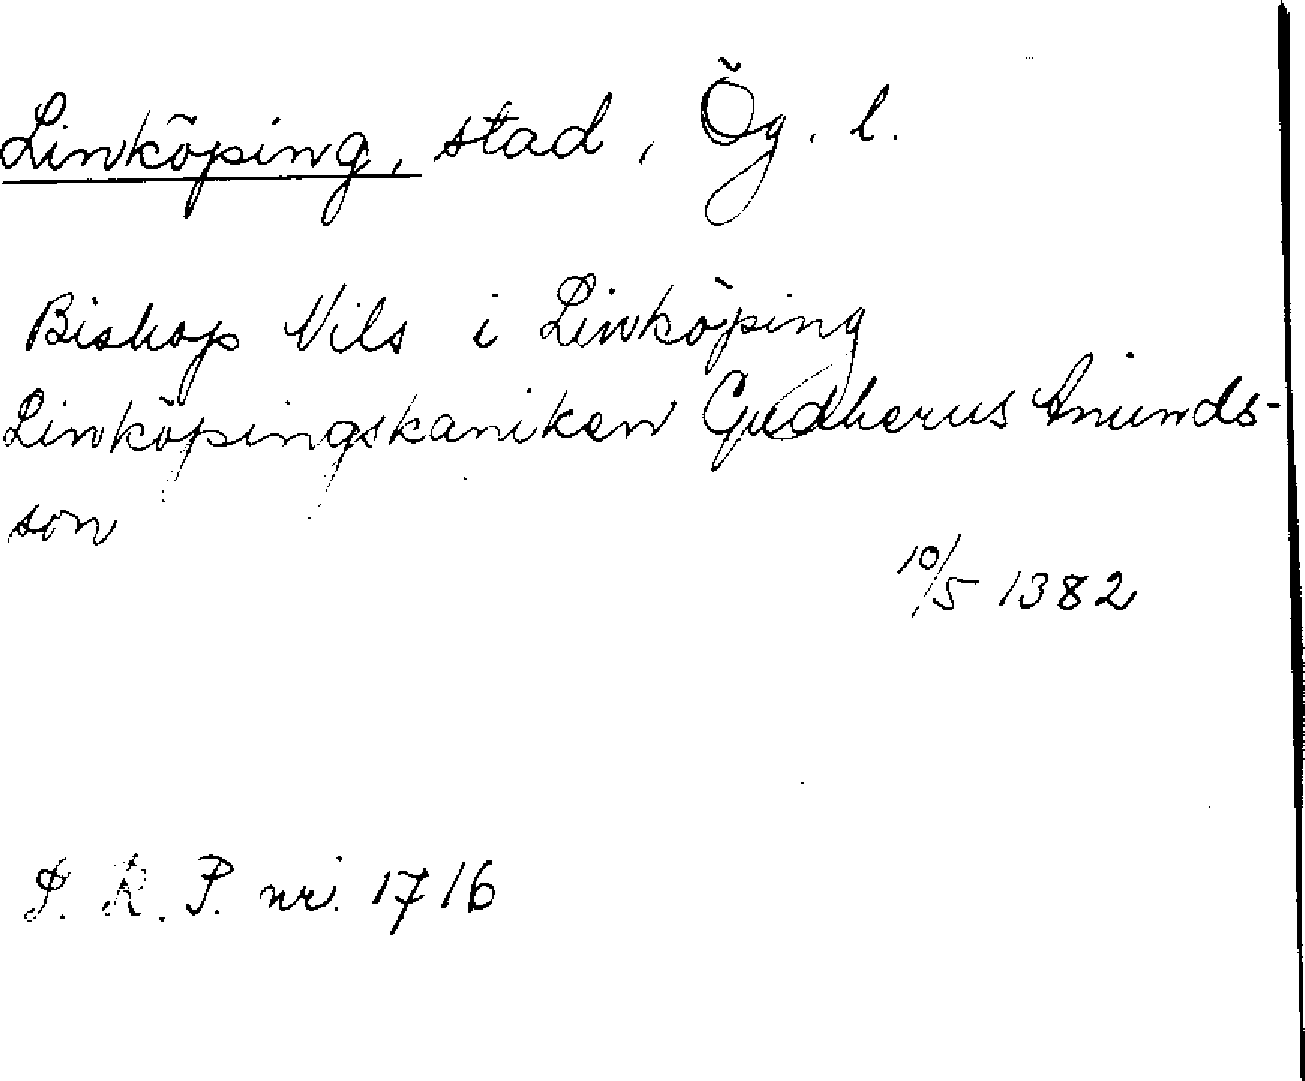 Linköping, stad, Ög. l.
Biskop Nils i Linköping
Linköpingskaniken Gudherus Anunds-
son
10/5 1382
S. R. P. nr. 1716